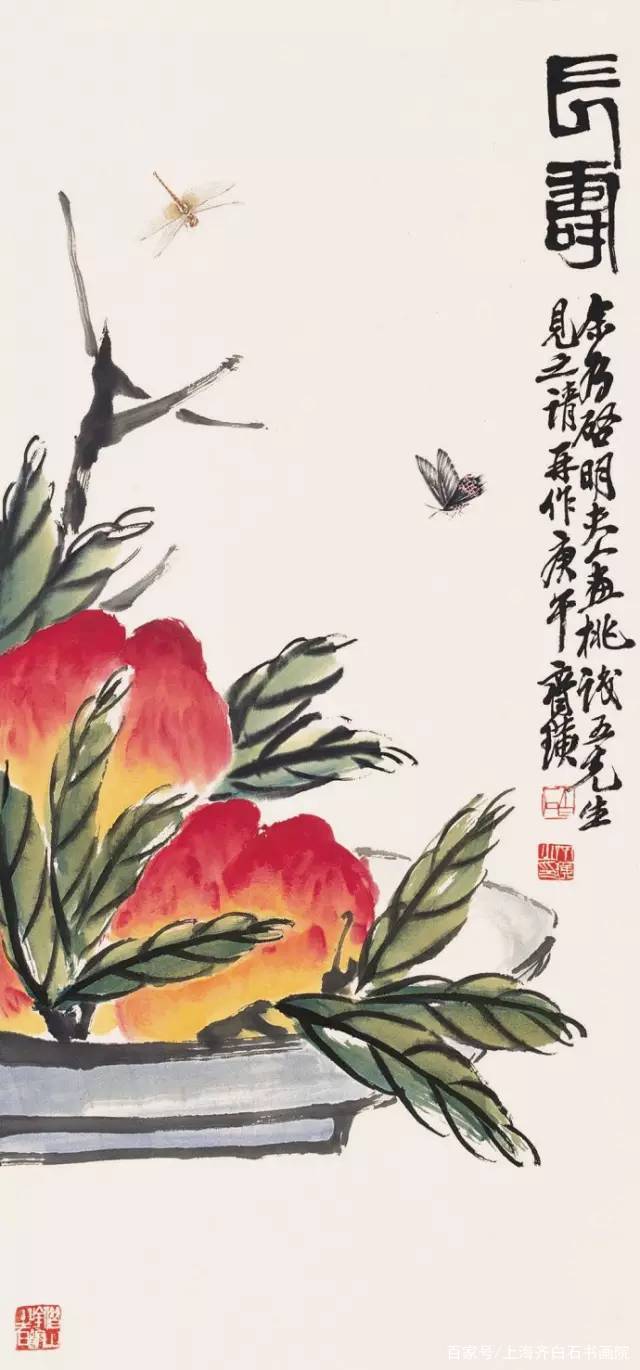 長壽
余為啓明夫人畫桃識五先生
見之請再作庚午齊璜
百家号/上海齐白石书画院